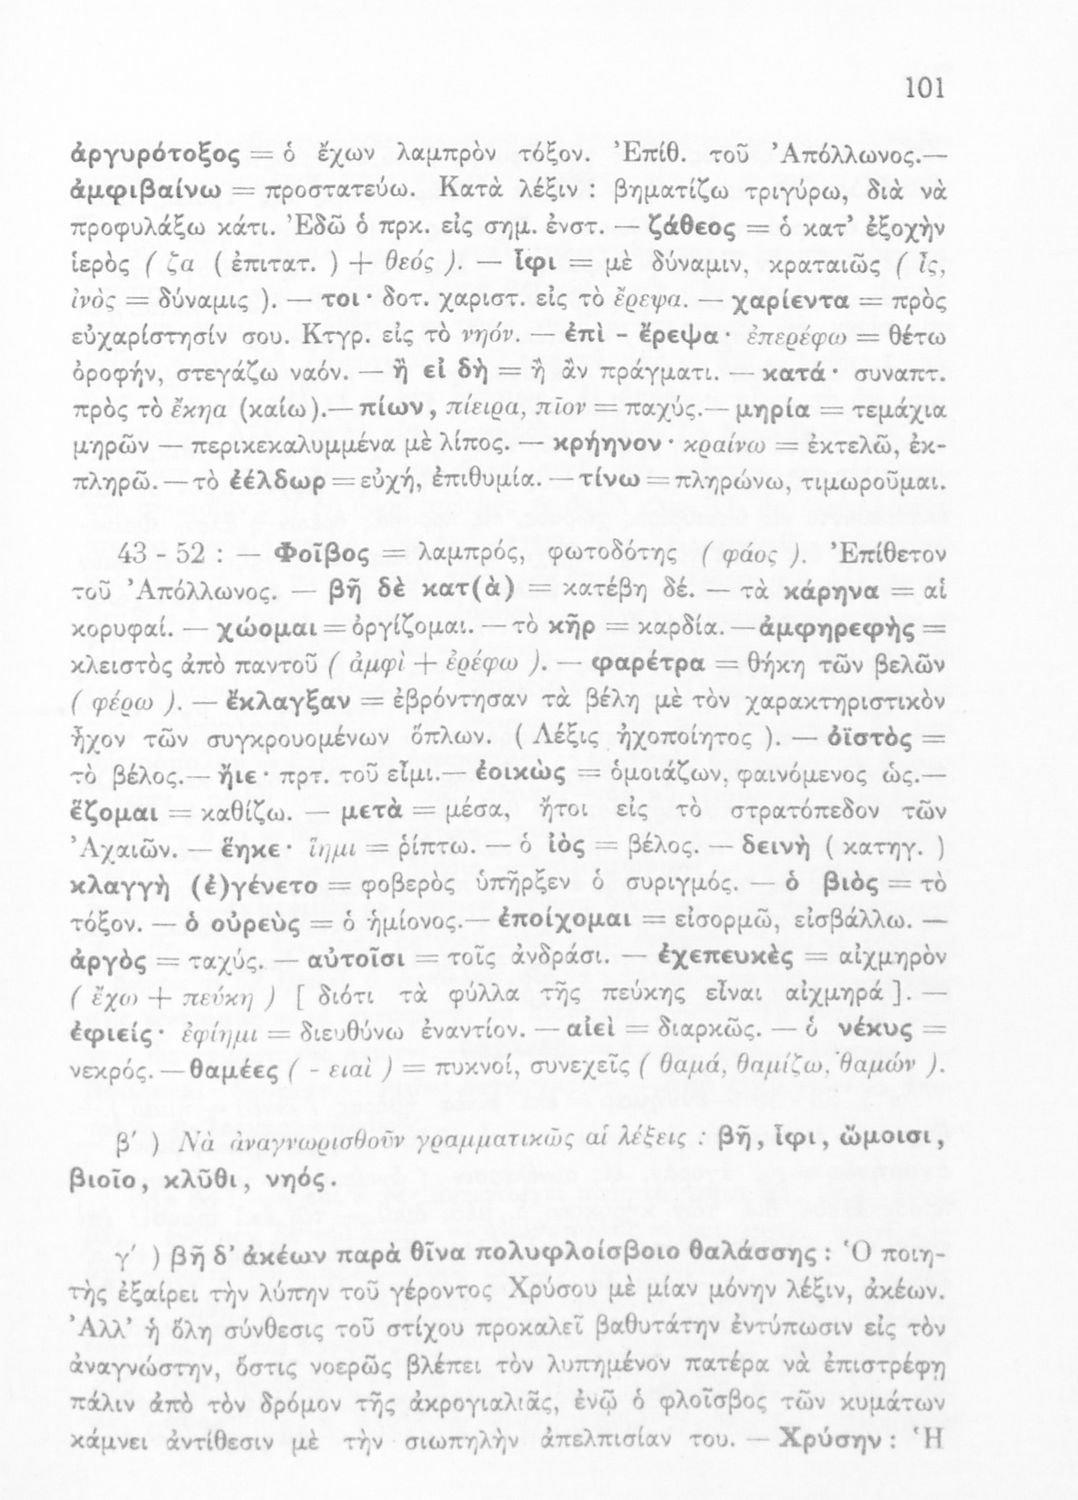 101
ἀργυρότοξος = ὁ ἔχων λαμπρὸν τόξον. Ἐπίθ. τοῦ Ἀπόλλωνος.—
ἀμφιβαίνω = προστατεύω. Κατὰ λέξιν : βηματίζω τριγύρω, διὰ νὰ
προφυλάξω κάτι. Ἐδῶ ὁ πρκ. εἰς σημ. ἐνστ. — ζάθεος = ὁ κατ' ἐξοχὴν
ἱερὸς ( ζα ( ἐπιτατ. ) + θεός ). — ἶφι = μὲ δύναμιν, κραταιῶς ( ἴς,
ἰνὸς = δύναμις ). — τοι· δοτ. χαριστ. εἰς τὸ ἔρεψα. — χαρίεντα = πρὸς
εὐχαρίστησίν σου. Κτγρ. εἰς τὸ νηόν. — ἐπὶ - ἔρεψα· ἐπερέφω = θέτω
ὀροφήν, στεγάζω ναόν. — ἢ εἰ δὴ = ἢ ἂν πράγματι. — κατά· συναπτ.
πρὸς τὸ ἔκηα (καίω).— πίων, πίειρα, πῖον = παχύς.— μηρία = τεμάχια
μηρῶν — περικεκαλυμμένα μὲ λίπος. — κρήηνον· κραίνω = ἐκτελῶ, ἐκ-
πληρῶ. — τὸ ἐέλδωρ = εὐχή, ἐπιθυμία. — τίνω = πληρώνω, τιμωροῦμαι.
43 - 52 : — Φοῖβος = λαμπρός, φωτοδότης ( φάος ). Ἐπίθετον
τοῦ Ἀπόλλωνος. — βῆ δὲ κατ(ὰ) = κατέβη δέ. — τὰ κάρηνα = αἱ
κορυφαί. — χώομαι = ὀργίζομαι. — τὸ κῆρ = καρδία. — ἀμφηρεφὴς =
κλειστὸς ἀπὸ παντοῦ ( ἀμφὶ + ἐρέφω ). — φαρέτρα = θήκη τῶν βελῶν
( φέρω ). — ἔκλαγξαν = ἐβρόντησαν τὰ βέλη μὲ τὸν χαρακτηριστικὸν
ἦχον τῶν συγκρουομένων ὅπλων. ( Λέξις ἠχοποίητος ). — ὀϊστὸς =
τὸ βέλος.— ἤιε· πρτ. τοῦ εἶμι.— ἐοικὼς = ὁμοιάζων, φαινόμενος ὡς.—
ἕζομαι = καθίζω. — μετὰ = μέσα, ἤτοι εἰς τὸ στρατόπεδον τῶν
Ἀχαιῶν. — ἕηκε· ἵημι = ῥίπτω. — ὁ ἰὸς = βέλος. — δεινὴ ( κατηγ. )
κλαγγὴ (ἐ)γένετο = φοβερὸς ὑπῆρξεν ὁ συριγμός. — ὁ βιὸς = τὸ
τόξον. — ὁ οὐρεὺς = ὁ ἡμίονος.— ἐποίχομαι = εἰσορμῶ, εἰσβάλλω. —
ἀργὸς = ταχύς. — αὐτοῖσι = τοῖς ἀνδράσι. — ἐχεπευκὲς = αἰχμηρὸν
( ἔχω + πεύκη ) [ διότι τὰ φύλλα τῆς πεύκης εἶναι αἰχμηρά ]. —
ἐφιείς· ἐφίημι = διευθύνω ἐναντίον. — αἰεὶ = διαρκῶς. — ὁ νέκυς =
νεκρός. — θαμέες ( - ειαὶ ) = πυκνοί, συνεχεῖς ( θαμά, θαμίζω, θαμών ).
β' ) Νὰ ἀναγνωρισθοῦν γραμματικῶς αἱ λέξεις : βῆ, ἶφι, ὤμοισι,
βιοῖο, κλῦθι, νηός.
γ' ) βῆ δ' ἀκέων παρὰ θῖνα πολυφλοίσβοιο θαλάσσης : Ὁ ποιη-
τὴς ἐξαίρει τὴν λύπην τοῦ γέροντος Χρύσου μὲ μίαν μόνην λέξιν, ἀκέων.
Ἀλλ' ἡ ὅλη σύνθεσις τοῦ στίχου προκαλεῖ βαθυτάτην ἐντύπωσιν εἰς τὸν
ἀναγνώστην, ὅστις νοερῶς βλέπει τὸν λυπημένον πατέρα νὰ ἐπιστρέφῃ
πάλιν ἀπὸ τὸν δρόμον τῆς ἀκρογιαλιᾶς, ἐνῷ ὁ φλοῖσβος τῶν κυμάτων
κάμνει ἀντίθεσιν μὲ τὴν σιωπηλὴν ἀπελπισίαν του. — Χρύσην : Ἡ